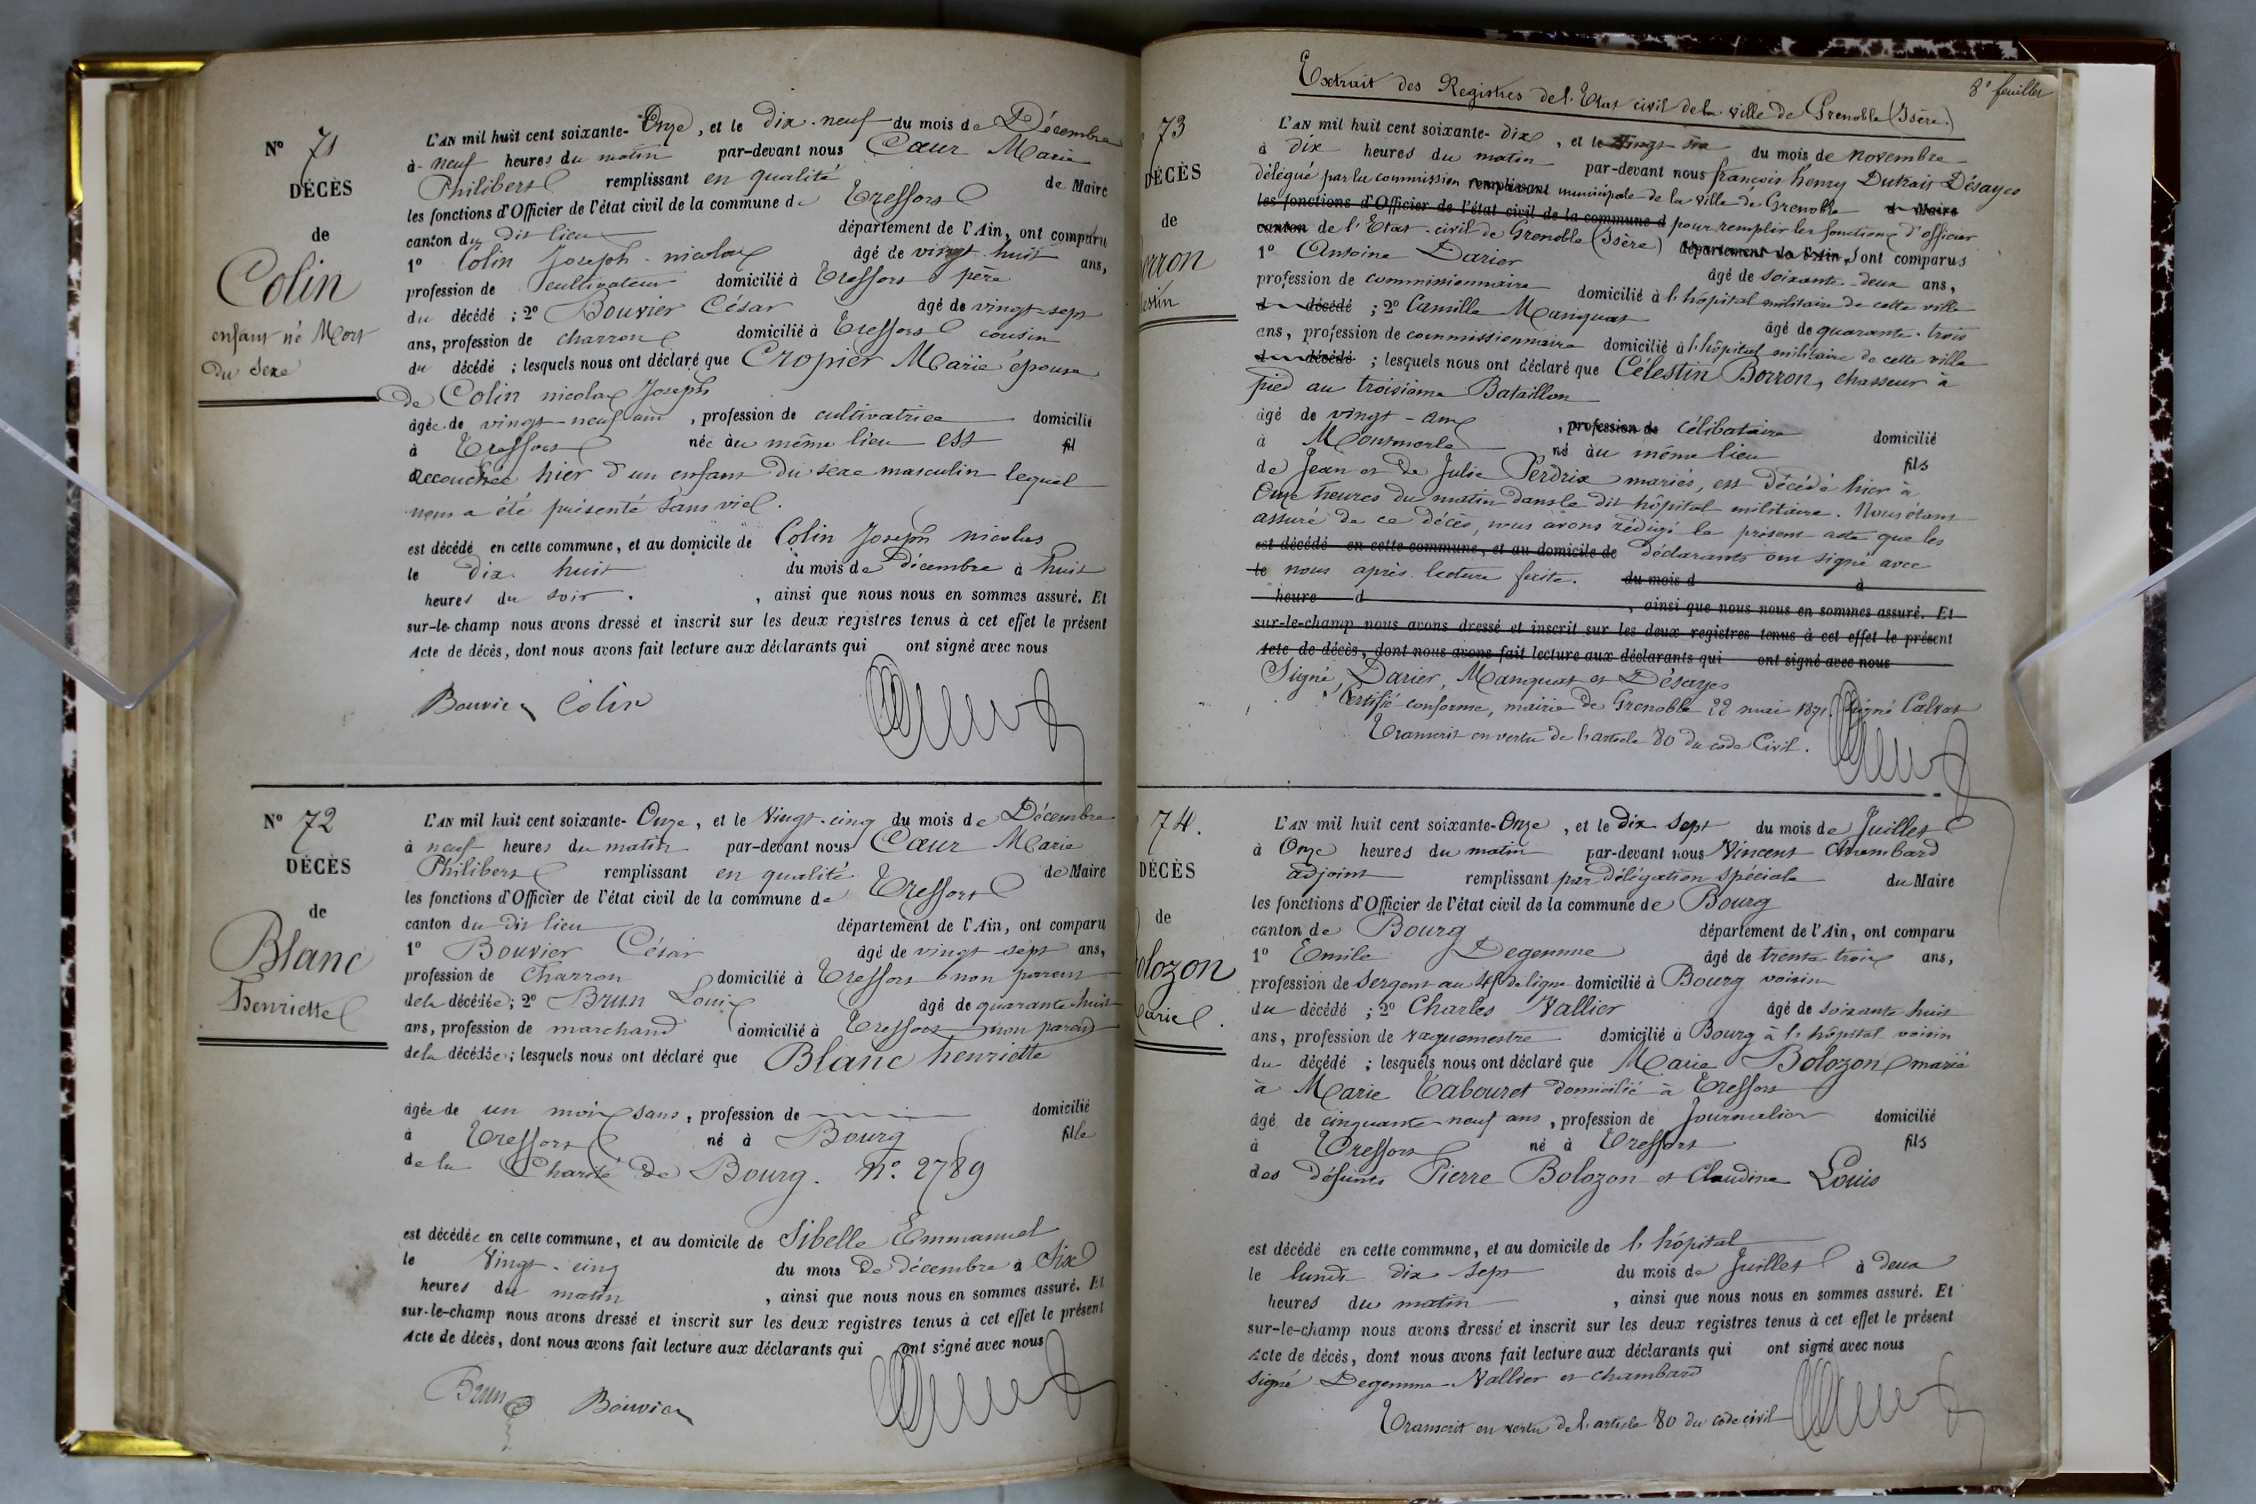 Nº 71
DÉCÈS
de
Colin
enfant né Mort
du Sexe
L'AN mil huit cent soixante-Onze, et le dix-neuf du mois de Décembre
à neuf heures du matin par-devant nous Cœur Marie
Philibert remplissant en qualité de Maire
les fonctions d'Officier de l'état civil de la commune de Treffort
canton du dit lieu département de l'Ain, ont comparu
1º Colin Joseph-nicolas âgé de vingt-huit ans,
profession de cultivateur domicilié à Treffort père
du décédé ; 2º Bouvier César âgé de vingt-sept
ans, profession de charron domicilié à Treffort cousin
du décédé ; lesquels nous ont déclaré que Cropier Marie épouse
de Colin nicolas Joseph
âgée de vingt-neuf ans, profession de cultivatrice domicilié
à Treffort née au même lieu est fil
accouchée hier d'un enfant du sexe masculin lequel
nous a été présenté sans vie.
est décédé en cette commune, et au domicile de Colin Joseph nicolas
le dix-huit du mois de décembre à huit
heures du soir. , ainsi que nous nous en sommes assuré. Et
sur-le-champ nous avons dressé et inscrit sur les deux registres tenus à cet effet le présent
Acte de décès, dont nous avons fait lecture aux déclarants qui ont signé avec nous
Bouvier Colin
Nº 72
DÉCÈS
de
Blanc
henriette
L'AN mil huit cent soixante-Onze, et le Vingt-cinq du mois de Décembre
à neuf heures du matin par-devant nous Cœur Marie
Philibert remplissant en qualité de Maire
les fonctions d'Officier de l'état civil de la commune de Treffort
canton du dit lieu département de l'Ain, ont comparu
1º Bouvier César âgé de vingt sept ans,
profession de Charron domicilié à Treffort non parent
de la décédée ; 2º Brun Louis âgé de quarante-huit
ans, profession de marchand domicilié à Treffort non parent
de la décédée ; lesquels nous ont déclaré que Blanc henriette
âgée de un mois sans, profession de domicilié
à Treffort né à Bourg fille
de la Charité de Bourg. Nº 2789
est décédée en cette commune, et au domicile de Sibelle Emmanuel
le Vingt-cinq du mois de décembre à Six
heures du matin , ainsi que nous nous en sommes assuré. Et
sur-le-champ nous avons dressé et inscrit sur les deux registres tenus à cet effet le présent
Acte de décès, dont nous avons fait lecture aux déclarants qui ont signé avec nous
Brun Bouvier
8e feuillet
Extrait des Registres de l'Etat civil de la ville de Grenoble (Isère.)
73
DÉCÈS
de
orron
estin
L'AN mil huit cent soixante-dix, et le Vingt six du mois de novembre
à dix heures du matin par-devant nous françois henry Dutrait Désayes
délégué par la commission remplissant municipale de la ville de Grenoble d Maire
les fonctions d'Officier de l'état civil de la commune d pour remplir les fonctions d'officier
canton de l'Etat-civil de Grenoble (Isère) département de l'Ain, sont comparus
1º Antoine Darier âgé de soixante-deux ans,
profession de commissionnaire domicilié à l'hôpital militaire de cette ville
d décédé ; 2º Camille Manquat âgé de quarante-trois
ans, profession de commissionnaire domicilié à l'hôpital militaire de cette ville
d décédé ; lesquels nous ont déclaré que Célestin Borron, chasseur à
pied au troisième Bataillon
âgé de vingt-ans, profession de célibataire domicilié
à Montmerle né au même lieu fils
de Jean et de Julie Perdrix mariés, est décédé hier à
Onze heures du matin dans le dit hôpital militaire. Nous étant
assuré de ce décès, nous avons rédigé le présent acte que les
est décédé en cette commune, et au domicile de déclarants ont signé avec
le nous après lecture faite. du mois d à
heure d , ainsi que nous nous en sommes assuré. Et
sur-le-champ nous avons dressé et inscrit sur les deux registres tenus à cet effet le présent
Acte de décès, dont nous avons fait lecture aux déclarants qui ont signé avec nous
Signé, Darier, Manquat et Désayes
Certifié conforme, mairie de Grenoble 22 mai 1871. Signé Calvat
Transcrit en vertu de l'article 80 du code Civil.
74.
DÉCÈS
de
olozon
arie
L'AN mil huit cent soixante-Onze, et le dix sept du mois de Juillet
à Onze heures du matin par-devant nous Vincent Chambard
adjoint remplissant par délégation spéciale du Maire
les fonctions d'Officier de l'état civil de la commune de Bourg
canton de Bourg département de l'Ain, ont comparu
1º Emile Degemme âgé de trente trois ans,
profession de Sergent au 4e de ligne domicilié à Bourg voisin
du décédé ; 2º Charles Vallier âgé de soixante huit
ans, profession de vaguemestre domicilié à Bourg à l'hôpital voisin
du décédé ; lesquels nous ont déclaré que Marie Bolozon marié
à Marie Tabouret domicilié à Treffort
âgé de cinquante neuf ans, profession de Journalier domicilié
à Treffort né à Treffort fils
des défunts Pierre Bolozon et Claudine Louis
est décédé en cette commune, et au domicile de l'hôpital
le lundi dix sept du mois de Juillet à deux
heures du matin , ainsi que nous nous en sommes assuré. Et
sur-le-champ nous avons dressé et inscrit sur les deux registres tenus à cet effet le présent
Acte de décès, dont nous avons fait lecture aux déclarants qui ont signé avec nous
signé Degemme Vallier et Chambard
Transcrit en vertu de l'article 80 du code civil